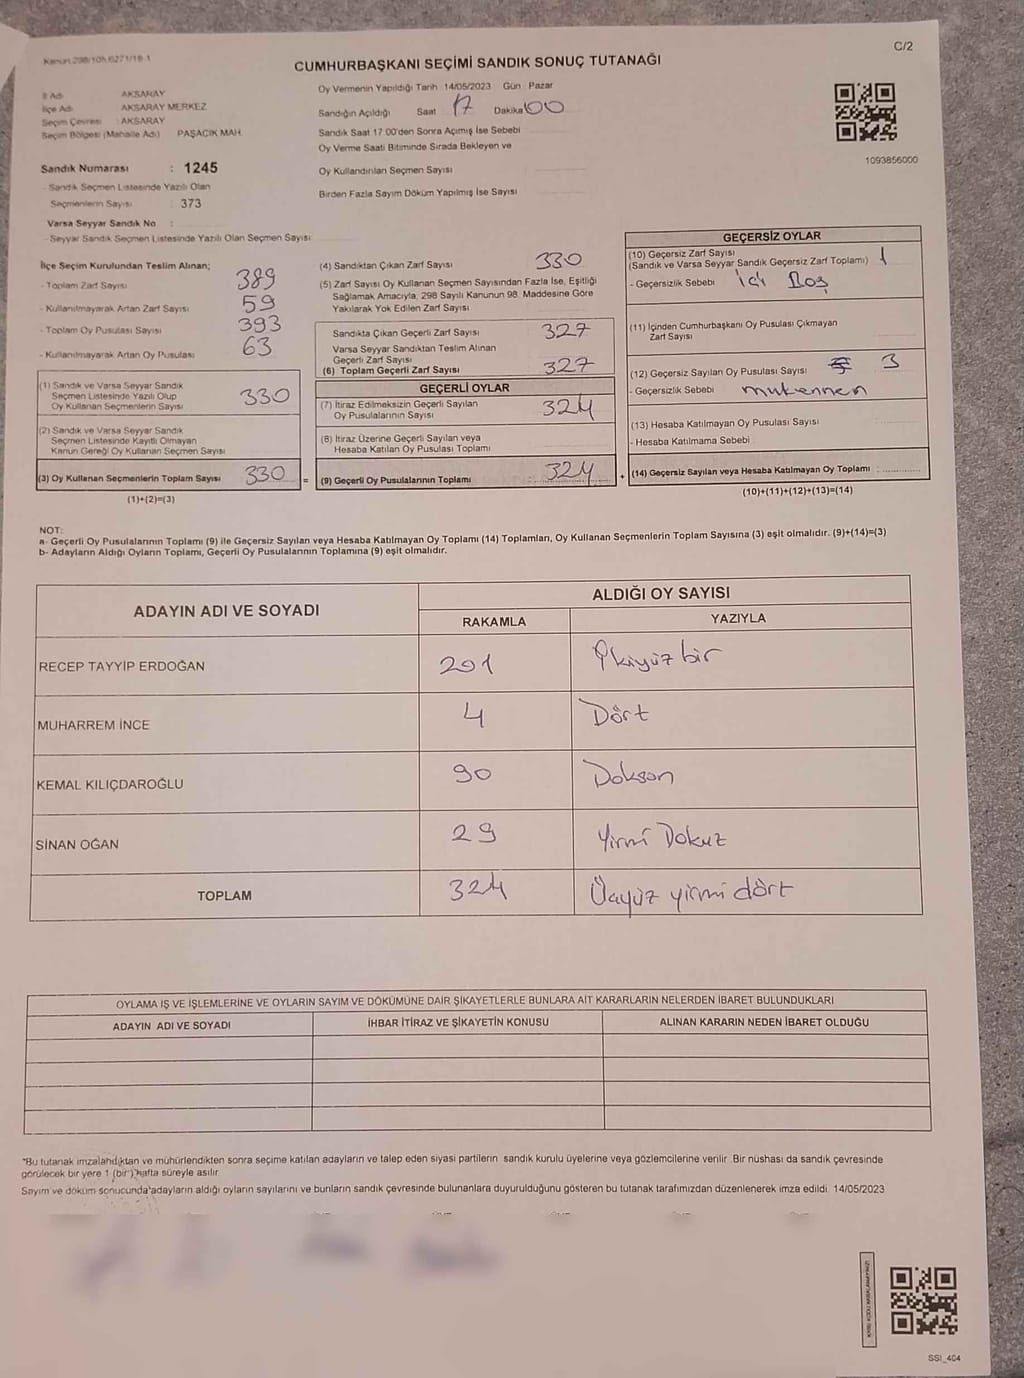 Kanun:298/10h.6271/18-1
C/2
CUMHURBAŞKANI SEÇİMİ SANDIK SONUÇ TUTANAĞI
İl Adı : AKSARAY
İlçe Adı : AKSARAY MERKEZ
Seçim Çevresi : AKSARAY
Seçim Bölgesi (Mahalle Adı) PAŞACIK MAH.
Sandık Numarası : 1245
- Sandık Seçmen Listesinde Yazılı Olan
Seçmenlerin Sayısı : 373
Varsa Seyyar Sandık No :
- Seyyar Sandık Seçmen Listesinde Yazılı Olan Seçmen Sayısı
Oy Vermenin Yapıldığı Tarih 14/05/2023 Gün : Pazar
Sandığın Açıldığı Saat 17 Dakika 00
Sandık Saat 17:00'den Sonra Açılmış İse Sebebi
Oy Verme Saati Bitiminde Sırada Bekleyen ve
Oy Kullandırılan Seçmen Sayısı
Birden Fazla Sayım Döküm Yapılmış İse Sayısı
1093856000
İlçe Seçim Kurulundan Teslim Alınan;
- Toplam Zarf Sayısı 389
- Kullanılmayarak Artan Zarf Sayısı 59
- Toplam Oy Pusulası Sayısı 393
- Kullanılmayarak Artan Oy Pusulası 63
(1) Sandık ve Varsa Seyyar Sandık
Seçmen Listesinde Yazılı Olup
Oy Kullanan Seçmenlerin Sayısı 330
(2) Sandık ve Varsa Seyyar Sandık
Seçmen Listesinde Kayıtlı Olmayan
Kanun Gereği Oy Kullanan Seçmen Sayısı
(3) Oy Kullanan Seçmenlerin Toplam Sayısı 330 =
(1)+(2)=(3)
(4) Sandıktan Çıkan Zarf Sayısı 330
(5) Zarf Sayısı Oy Kullanan Seçmen Sayısından Fazla İse, Eşitliği
Sağlamak Amacıyla, 298 Sayılı Kanunun 98. Maddesine Göre
Yakılarak Yok Edilen Zarf Sayısı
Sandıkta Çıkan Geçerli Zarf Sayısı 327
Varsa Seyyar Sandıktan Teslim Alınan
Geçerli Zarf Sayısı
(6) Toplam Geçerli Zarf Sayısı 327
GEÇERLİ OYLAR
(7) İtiraz Edilmeksizin Geçerli Sayılan
Oy Pusulalarının Sayısı 324
(8) İtiraz Üzerine Geçerli Sayılan veya
Hesaba Katılan Oy Pusulası Toplamı
(9) Geçerli Oy Pusulalarının Toplamı 324 +
GEÇERSİZ OYLAR
(10) Geçersiz Zarf Sayısı
(Sandık ve Varsa Seyyar Sandık Geçersiz Zarf Toplamı) 1
- Geçersizlik Sebebi içi Boş
(11) İçinden Cumhurbaşkanı Oy Pusulası Çıkmayan
Zarf Sayısı
(12) Geçersiz Sayılan Oy Pusulası Sayısı 3
- Geçersizlik Sebebi mükerrer
(13) Hesaba Katılmayan Oy Pusulası Sayısı
- Hesaba Katılmama Sebebi
(14) Geçersiz Sayılan veya Hesaba Katılmayan Oy Toplamı :
(10)+(11)+(12)+(13)=(14)
NOT:
a- Geçerli Oy Pusulalarının Toplamı (9) ile Geçersiz Sayılan veya Hesaba Katılmayan Oy Toplamı (14) Toplamları, Oy Kullanan Seçmenlerin Toplam Sayısına (3) eşit olmalıdır. (9)+(14)=(3)
b- Adayların Aldığı Oyların Toplamı, Geçerli Oy Pusulalarının Toplamına (9) eşit olmalıdır.
ADAYIN ADI VE SOYADI
ALDIĞI OY SAYISI
RAKAMLA YAZIYLA
RECEP TAYYİP ERDOĞAN 201 İkiyüz bir
MUHARREM İNCE 4 Dört
KEMAL KILIÇDAROĞLU 90 Doksan
SİNAN OĞAN 29 Yirmi Dokuz
TOPLAM 324 Üçyüz yirmi dört
OYLAMA İŞ VE İŞLEMLERİNE VE OYLARIN SAYIM VE DÖKÜMÜNE DAİR ŞİKAYETLERLE BUNLARA AİT KARARLARIN NELERDEN İBARET BULUNDUKLARI
ADAYIN ADI VE SOYADI İHBAR İTİRAZ VE ŞİKAYETİN KONUSU ALINAN KARARIN NEDEN İBARET OLDUĞU
*Bu tutanak imzalandıktan ve mühürlendikten sonra seçime katılan adayların ve talep eden siyasi partilerin sandık kurulu üyelerine veya gözlemcilerine verilir. Bir nüshası da sandık çevresinde
görülecek bir yere 1 (bir) hafta süreyle asılır.
Sayım ve döküm sonucunda adayların aldığı oyların sayılarını ve bunların sandık çevresinde bulunanlara duyurulduğunu gösteren bu tutanak tarafımızdan düzenlenerek imza edildi. 14/05/2023
SSI_404